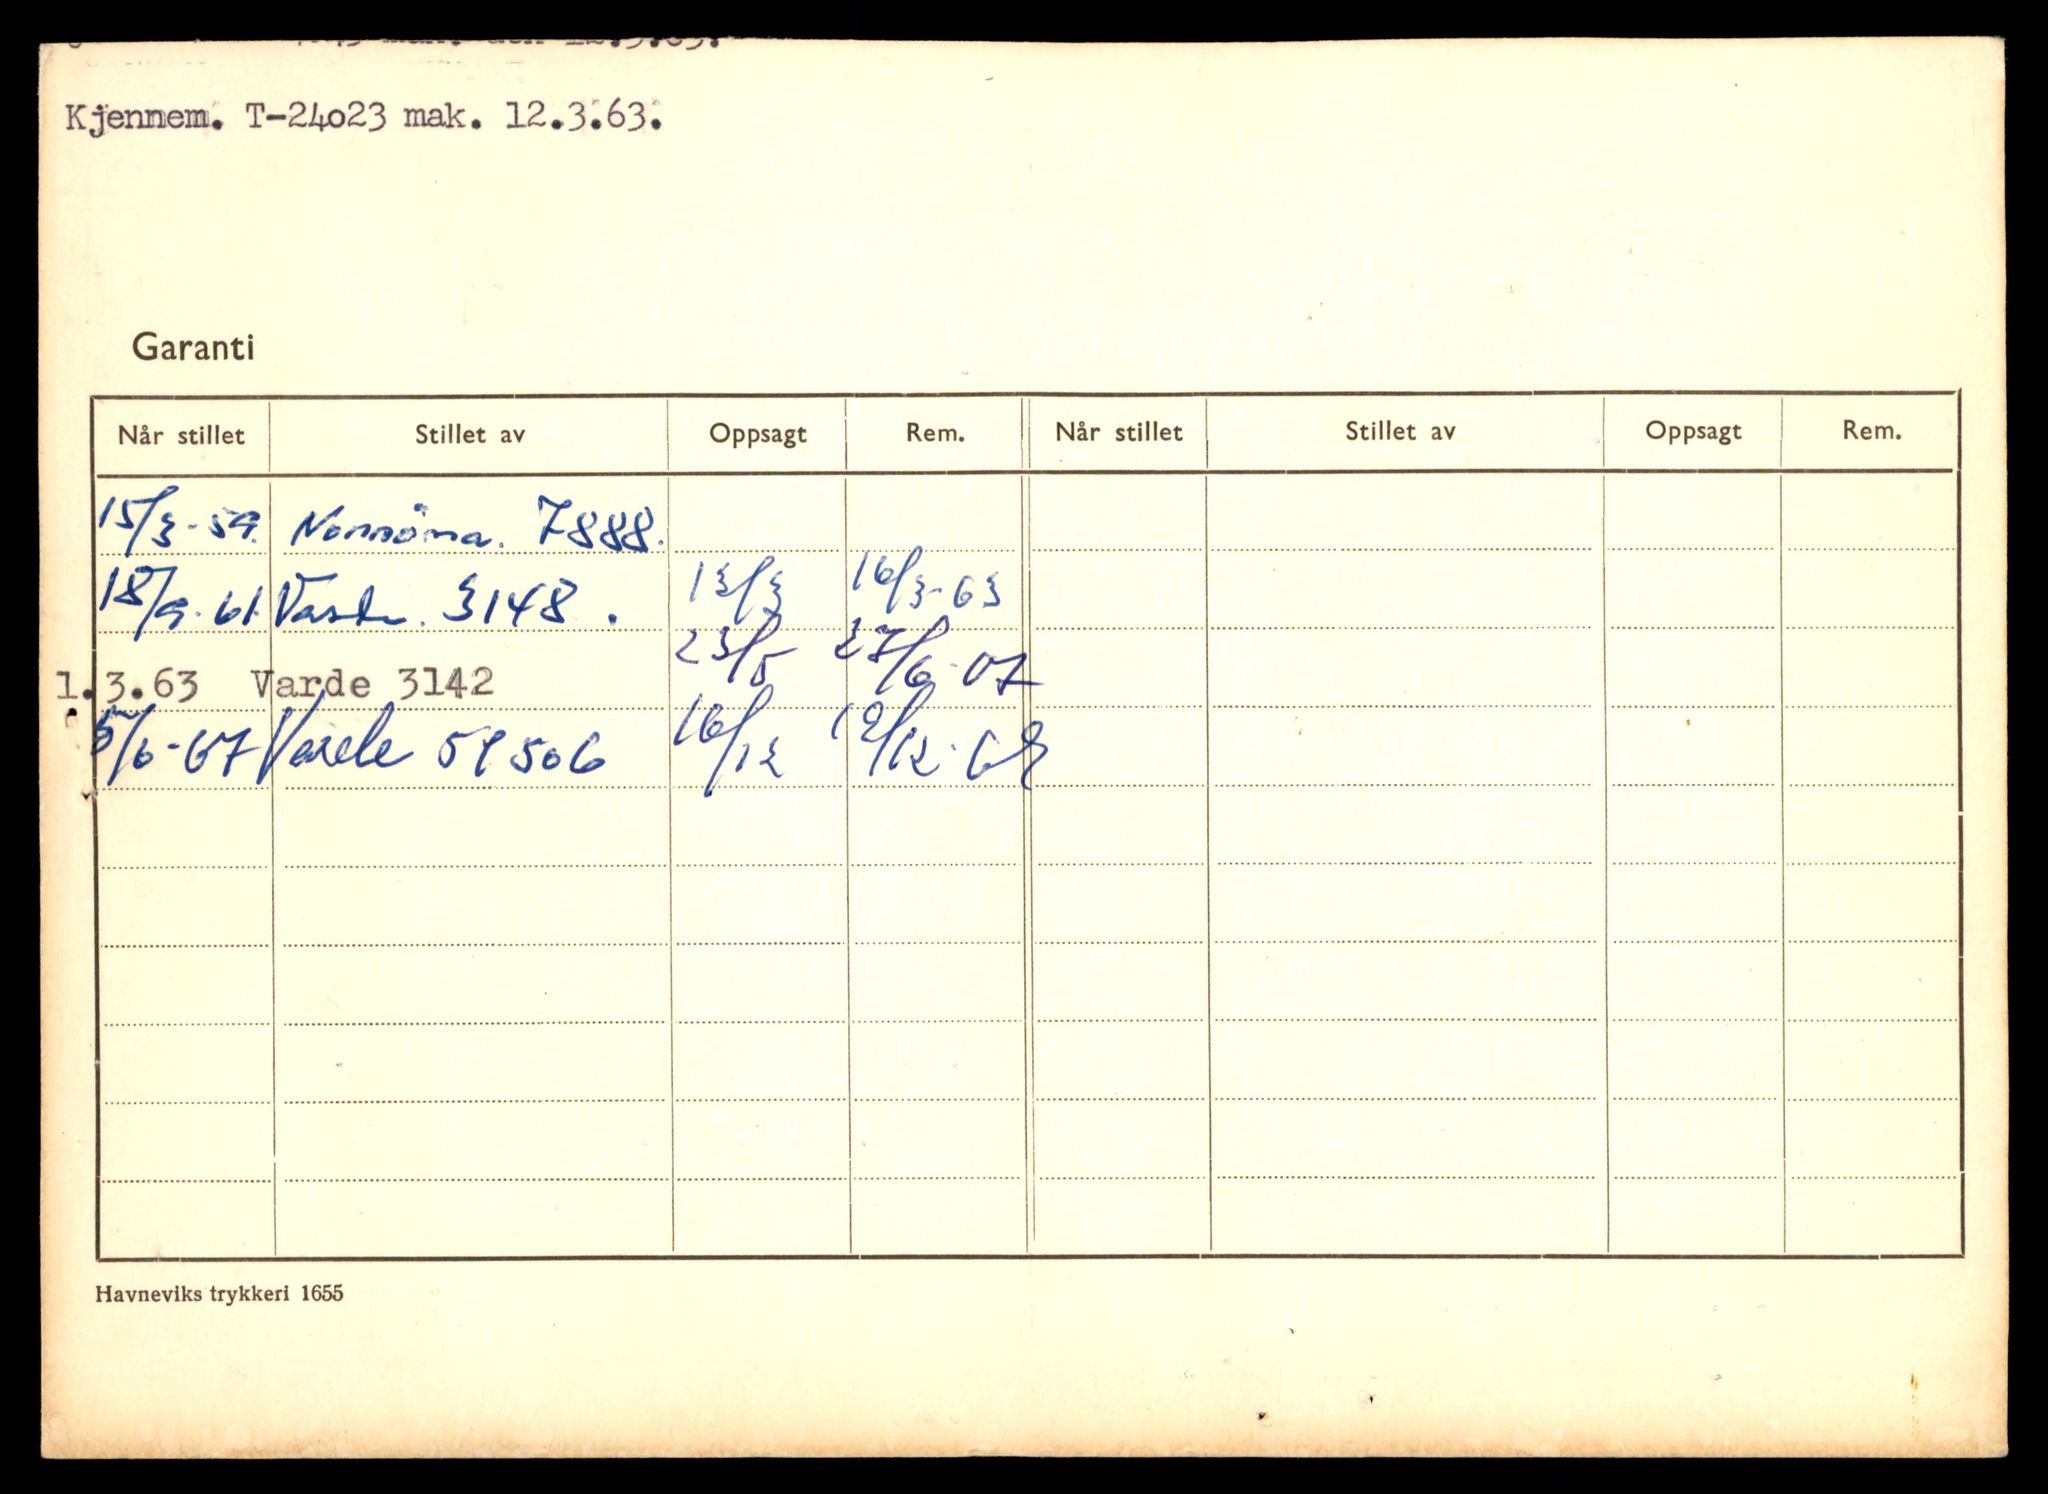 Kjennem. T-24o23 mak. 12.3.63.
Garanti
Når stillet Stillet av Oppsagt Rem. Når stillet Stillet av Oppsagt Rem.
15/3-59. 7888.
18/9-61. Varde. 3148. 13/3 16/3-63
1.3.63 Varde 3142 23/5 27/6-67
5/6-67 Varde 59506 16/12 19/12-68
Havneviks trykkeri 1655